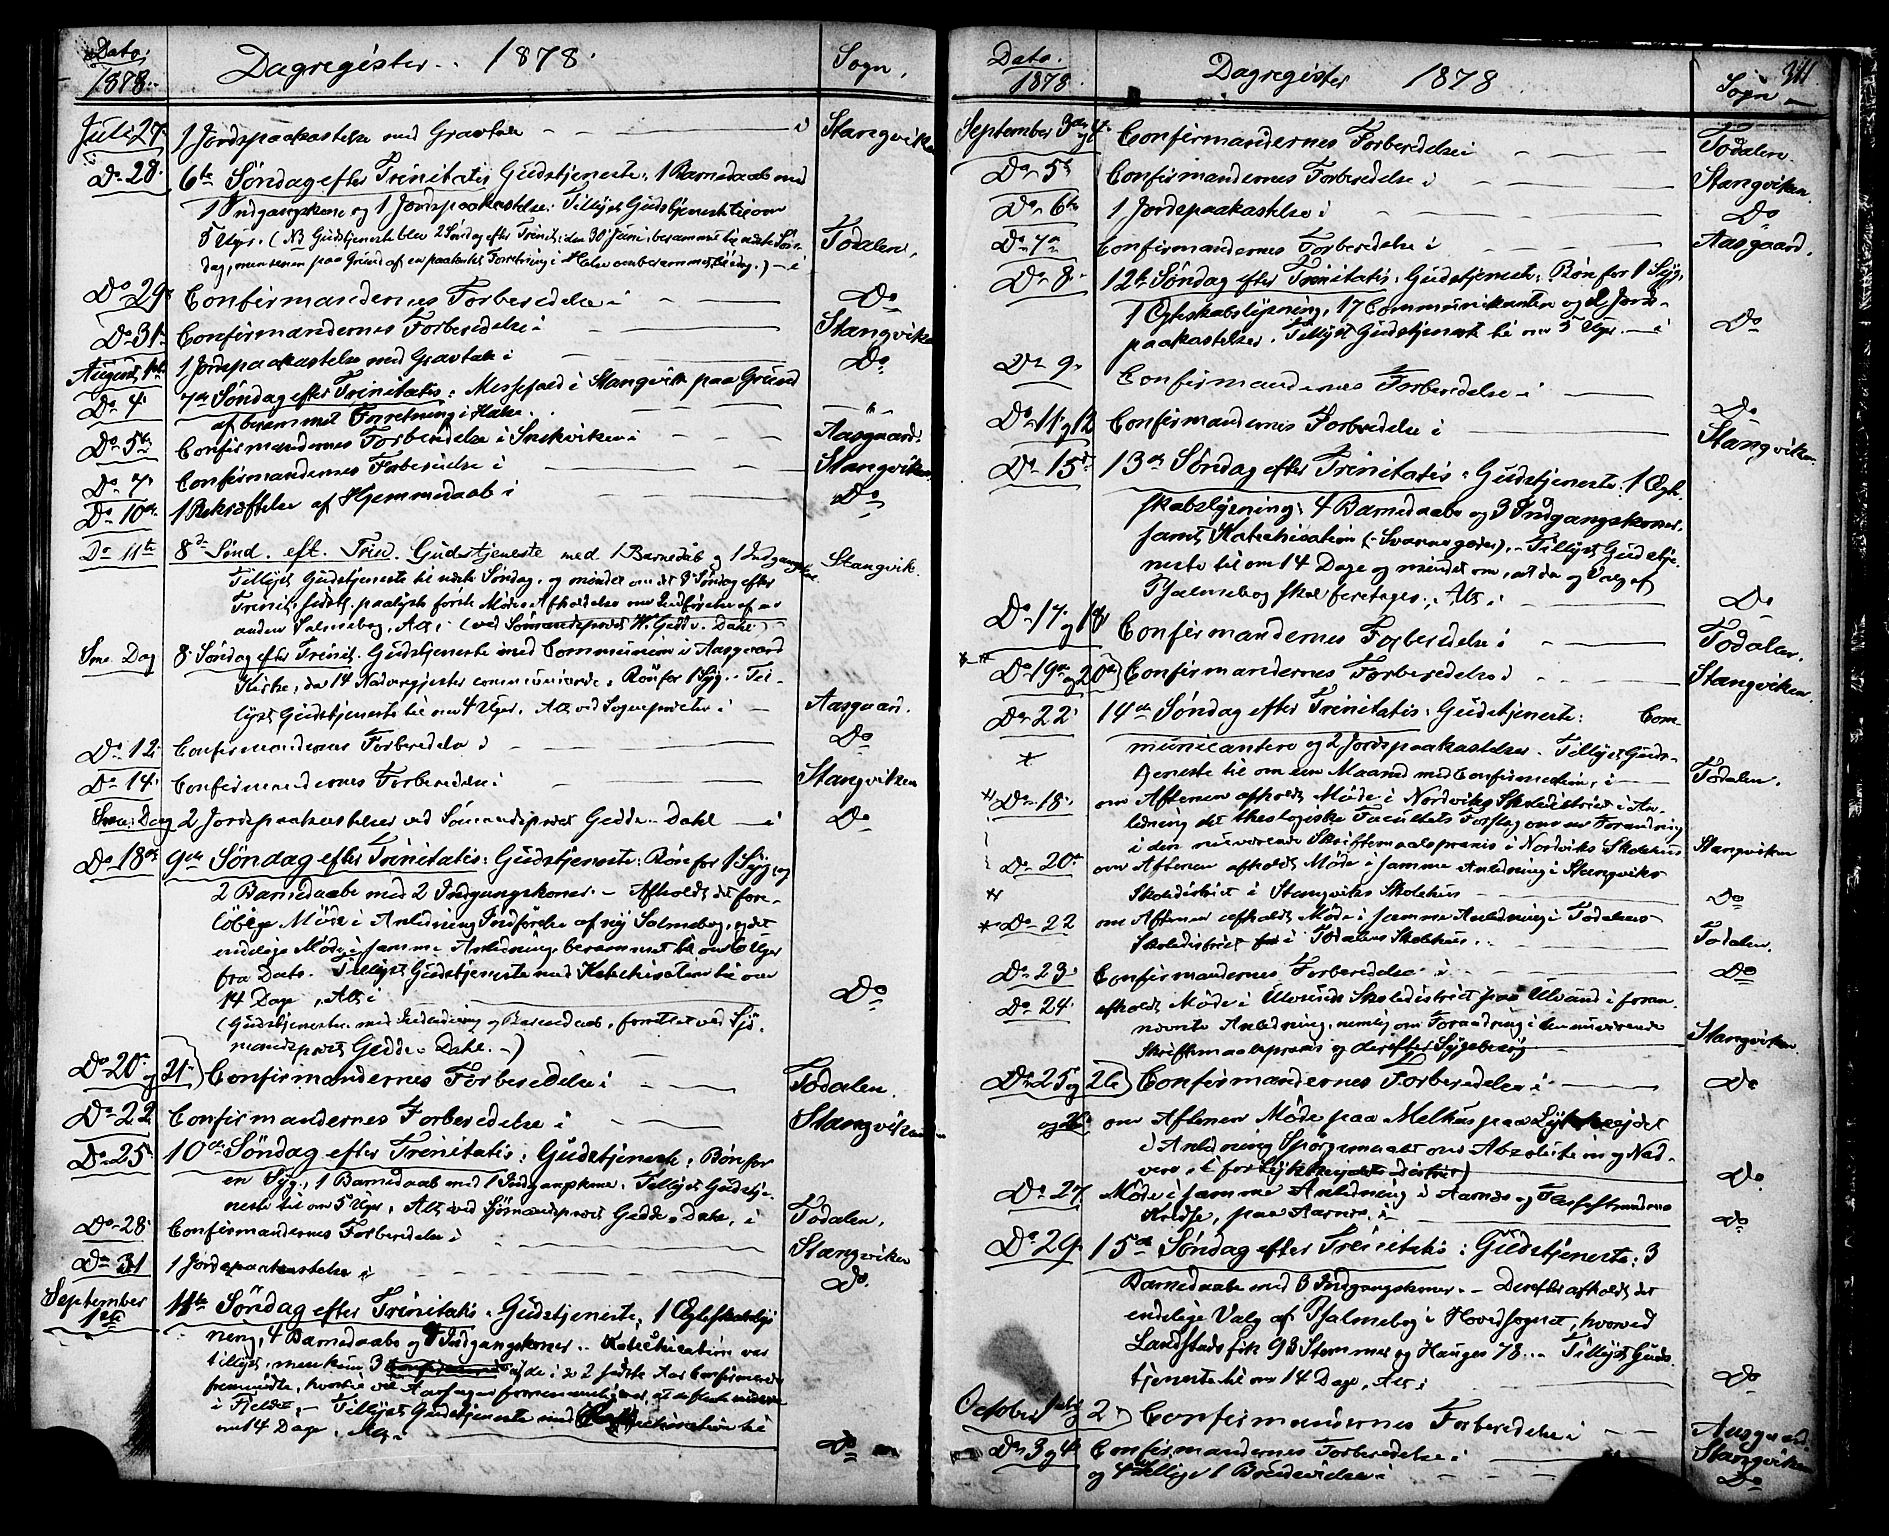 Dato:
1878.
Dagregister. 1878.
Sogn.
Juli 27. 1 Jordspaakastelse med Gravtale i Stangviken
Do 28. 6te Søndag efter Trinitatis Gudstjeneste; 1 Barnedaab med
1 Indgangskone og 1 Jordspaakastelse. Tillyst Gudstjeneste til om
5 Uger. (NB Gudstjeneste blev 2 Søndag efter Trinit. den 30 Juni, berammet til næste Søn-
dag, men senere paa Grund af en paatænkt Forretning i Halse omberammet til idag.) i Todalen.
Do 29. Confirmandernes Forberedelse i Do
Do 31. Confirmandernes Forberedelse i Stangviken
August 1ste 1 Jordspaakastelse med Gravtale i Do
Do 4. 7de Søndag efter Trinitatis: Messefald i Stangvik paa Grund
af berammet Forretning i Halse. — " —
Do 5te Confirmandernes Forberedelse i Snekviken i Aasgaard.
Do 7. Confirmandernes Forberedelse i Stangviken
Do 10de 1 Bekræftelse af Hjemmedaab i Do
Do 11te 8de Sønd. eft. Trin. Gudstjeneste med 1 Barnedåb og 1 Indgangskone Stangvik.
Tillyst Gudstjeneste til næste Søndag, og mindet om det 8 Søndag efter
Trinit. sidst. paalyste første Møde Afholdelse om Indførelse af en
anden Salmebog, Alt i (ved Sømandsprest W. Gedde-Dahl)
Sme. Dag 8. Søndag efter Trinit. Gudstjeneste med Communion i Aasgaard
Kirke, da 14 Nadvergjester communicerede. Bøn for 1 Syg. Til-
lyst Gudstjeneste til om 4 Uger. Alt ved Sognepresten i Aasgaard.
Do 12. Confirmandernes Forberedelse i Do
Do 14. Confirmandernes Forberedelse i Stangviken
Sme. Dag 2 Jordspaakastelser ved Sømandsprest Gedde-Dahl i Do
Do 18de 9de Søndag efter Trinitatis: Gudstjeneste: Bøn for 1 Syg, og
2 Barnedaabe med 2 Indgangskoner. — Afholdt det fore-
løbige Møde i Anledning Indførelse af ny Salmebog, og det
endelige Møde i samme Anledning berammet til om 6 Uger
fra Dato. Tillyst Gudstjeneste med Katechisation til om
14 Dage, Alt i Do
(Gudstjeneste med Indledning og Barnedaab, forrettet ved Sjø-
mandsprest Gedde-Dahl.—)
Do 20de og 21.) Confirmandernes Forberedelse i Todalen.
Do 22 Confirmandernes Forberedelse i Stangviken
Do 25. 10de Søndag efter Trinitatis: Gudstjeneste: Bøn for
en Syg, 1 Barnedaab med 1 Indgangskone. Tillyst Gudstje-
neste til om 5 Uger, Alt ved Sjømandsprest Gedde-Dahl, i Todalen.
Do 28. Confirmandernes Forberedelse i Stangviken
Do 31 1 Jordspaakastelse i Do
September 1ste 11te Søndag efter Trinitatis: Gudstjeneste, 1 Ægteskabslys-
ning, 4 Barnedaabe og 4 Indgangskoner. Katechisation var
tillyst, men kun 3 af de i de 2 sidste Aar Confirmerede
fremmødte, hvortil vel Aarsagen fornemmeligen, at de fleste ere
i Fjeldet. — Tillyst Gudstjeneste med Katechisation til
om 14 Dage, Alt i Do
Dato
1878.
Dagregister 1878
Sogn
311
September 3die og 4. Confirmandernes Forberedelse i Todalen.
Do 5te Confirmandernes Forberedelse i Stangviken.
Do 6te 1 Jordspaakastelse i Do
Do 7de Confirmandernes Forberedelse i Aasgaard.
Do 8. 12te Søndag efter Trinitatis: Gudstjeneste: Bøn for 1 Syg,
1 Ægteskabslysning, 17 Communikantere og 2 Jords-
paakastelser. Tillyst Gudstjeneste til om 5 Uger. — i Do
Do 9. Confirmandernes Forberedelse i Do
Do 11 og 12 Confirmandernes Forberedelse i Stangviken.
Do 15de 13de Søndag efter Trinitatis: Gudstjeneste: 1 Ægte-
skabslysning, 4 Barnedaabe og 3 Indgangskoner,
samt Katechisation. Tillyst Gudstje-
neste til om 14 Dage og mindet om, at da og Valg af
Psalmebog skal foretages. Alt i Do
Do 17 og 18 Confirmandernes Forberedelse i Todalen.
Do 19de og 20de) Confirmandernes Forberedelse i Stangviken
Do 22. 14de Søndag efter Trinitatis: Gudstjeneste: Com-
municantere og 2 Jordspaakastelser. Tillyst Guds-
tjeneste til om een Maaned med Confirmation, i Todalen.
Do 18. om Aftenen afholdt Møde i Nordviks Skoledistrict i An-
ledning det theologiske Facultets Forslag om en Forandring
i den nuværende Skriftemaalspraxis i Nordviks Skolehus Stangviken
Do 20de om Aftenen afholdt Møde i samme Anledning i Stangviks
Skoledistrict i Stangviks Skolehus Do
Do 22 om Aftenen afholdt Møde i samme Anledning i Todalens
Skoledistrict i Todalens Skolehus. Todalen.
Do 23. Confirmandernes Forberedelse i Do
Do 24. afholdt Møde i Ulvunds Skoledistrict paa Ulvund i foran
nævnte Anledning, nemlig om Forandring i den nuværende
Skriftemaalspraxis og derefter Sygebesøg Stangviken.
Do 25 og 26) Confirmandernes Forberedelse i Do
og 26. om Aftenen Møde paa Melhus paa
i Anledning Spørgsmaalet om Absolution og Nad-
vere, Do.
Do 27. Møde i samme Anledning i Aarnes og
Kredse, paa Aarnes, i Do
Do 29. 15de Søndag efter Trinitatis: Gudstjeneste: 3
Barnedaabe med 3 Indgangskoner. — Derefter afholdt det
endelige Valg af Psalmebog i Hovedsognet, hvorved
Landstads fik 93 Stemmer og Hauges 78. — Tillyst Guds-
tjeneste til om 14 Dage, Alt i Do
October 1ste og 2) Confirmandernes Forberedelse i Aasgaard.
Do 3 og 4 Confirmandernes Forberedelse i Stangviken
og 4 tillige 1 Brudevielse i Do